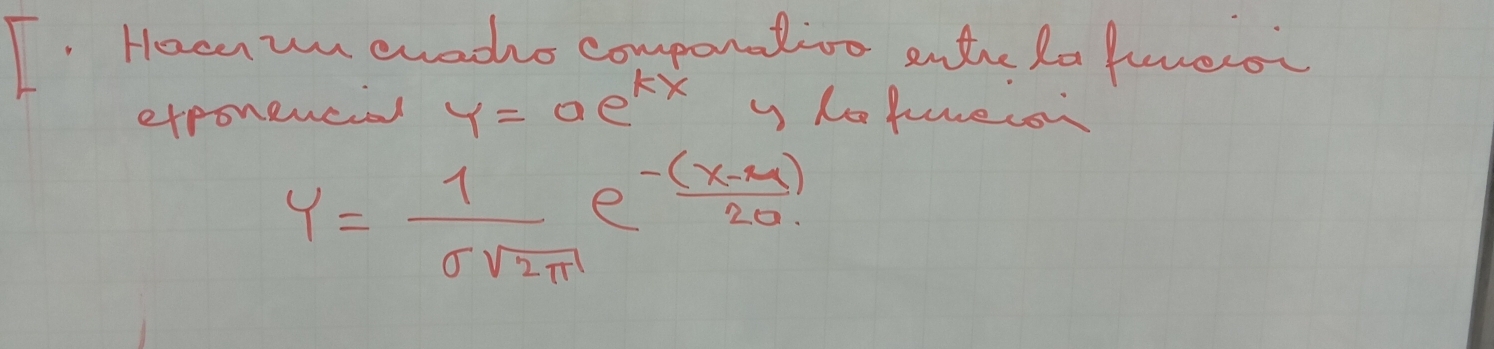 [. Hacer un cuadro comparativo entre la función
exponencial y = ae^{kx} y la función
y = \frac{1}{σ\sqrt{2π}} e^{-\frac{(x-μ)}{2σ}}.